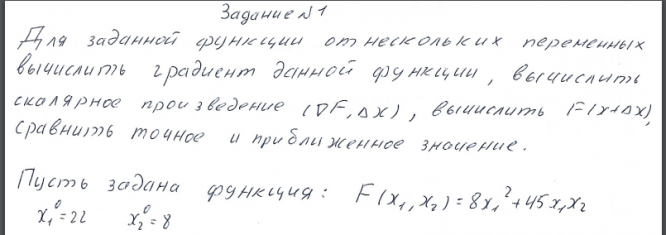 Задание №1
Для заданной функции от нескольких переменных
вычислить градиент данной функции, вычислить
скалярное произведение (∇F, Δx), вычислить F(x+Δx),
сравнить точное и приближенное значение.
Пусть задана функция: F(x₁, x₂) = 8x₁² + 45x₁x₂
x₁⁰ = 22 x₂⁰ = 8